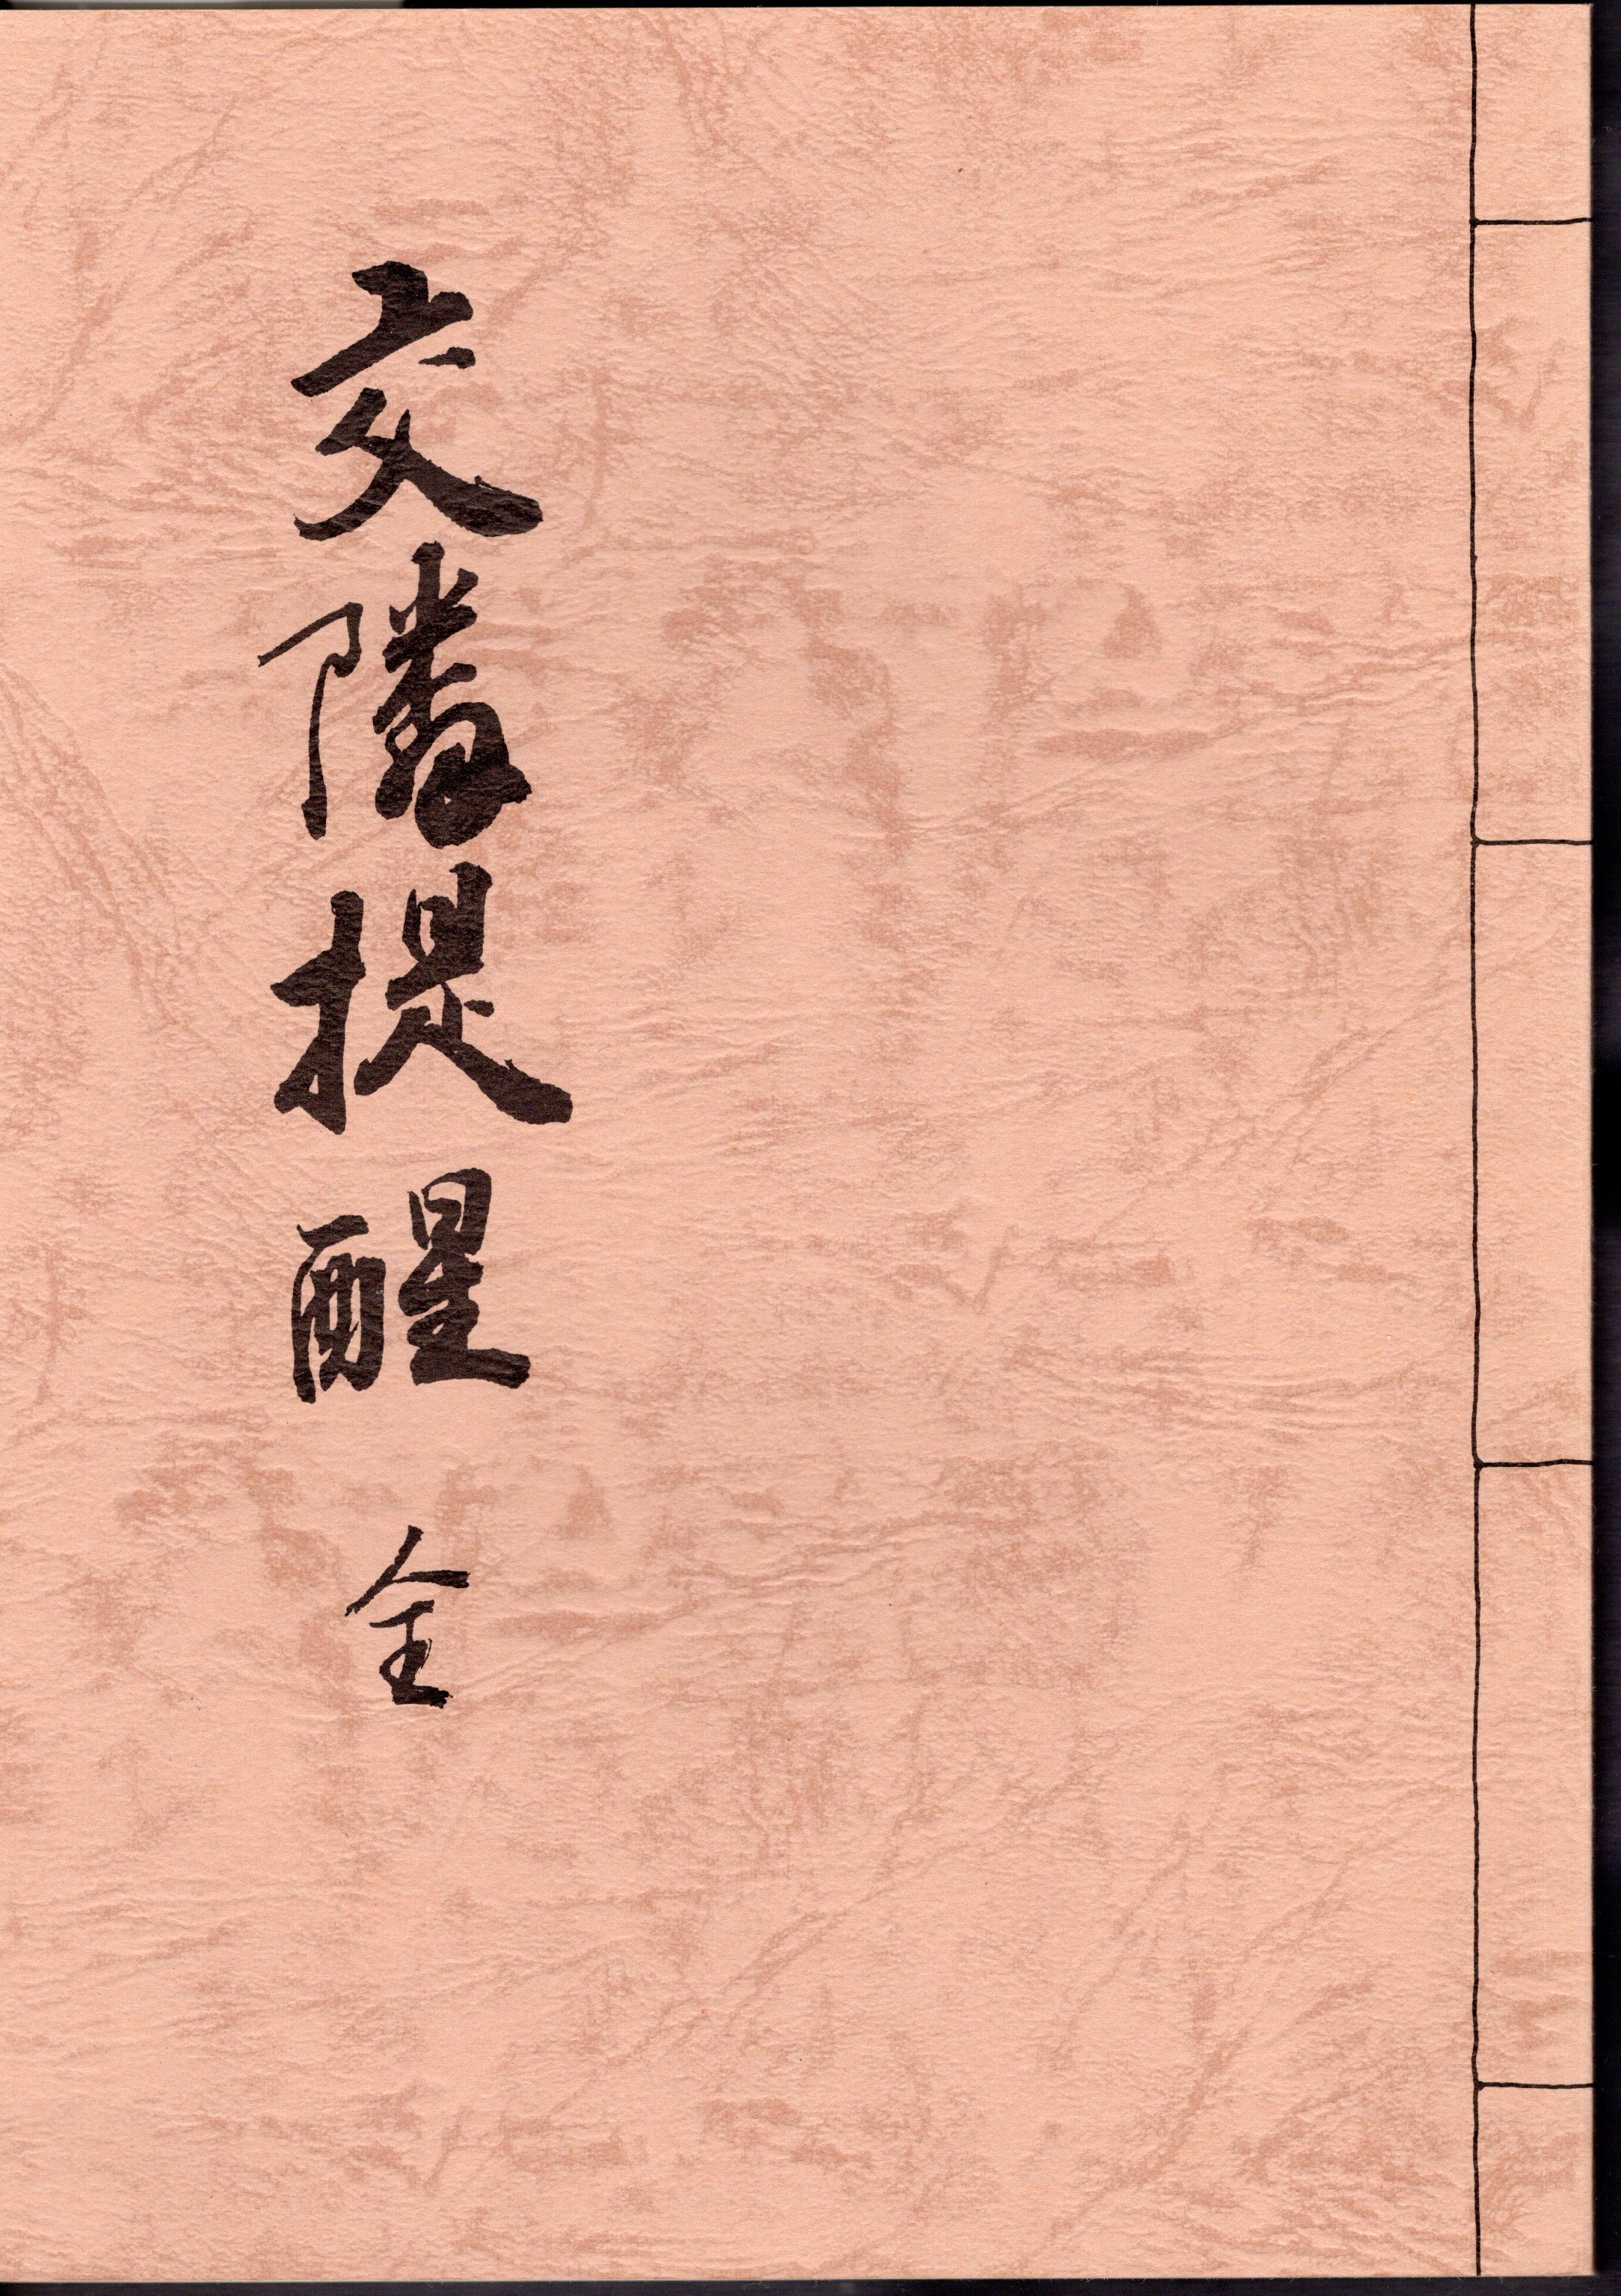 交隣提醒 全